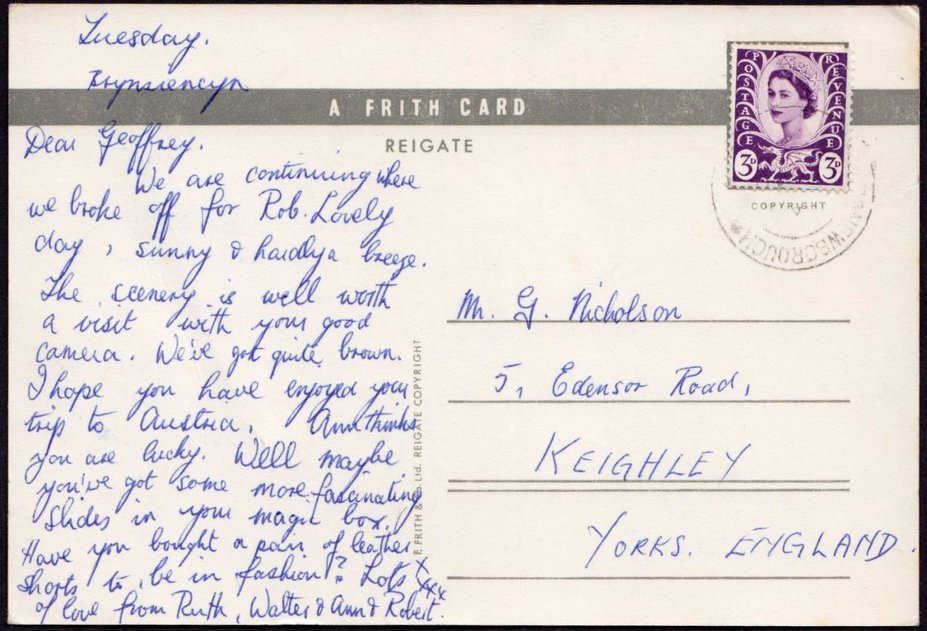 Tuesday.
Brynsiencyn
A FRITH CARD
REIGATE
Dear Geoffrey.
We are continuing where
we broke off for Rob. Lovely
day, sunny & hardly a breeze.
The scenery is well worth
a visit with your good
camera. We've got quite brown.
I hope you have enjoyed your
trip to Austria. Ann thinks
you are lucky. Well maybe
you've got some more fascinating
slides in your magic box.
Have you bought a pair of leather
shorts to be in fashion? Lots
of love from Ruth, Walter & Ann & Robert.
xxxx
F. FRITH & CO. Ltd. REIGATE COPYRIGHT
POSTAGE REVENUE
3D 3D
COPYRIGHT
Mr. G. Nicholson
5, Edensor Road,
KEIGHLEY
YORKS. ENGLAND.